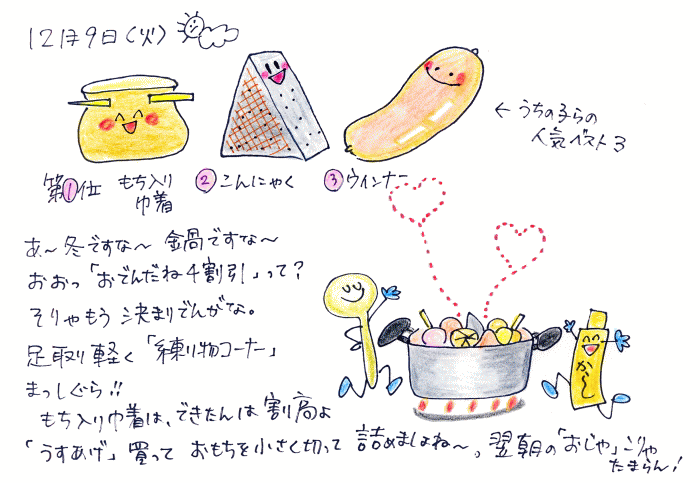 12月9日(火)
←うちの子らの
人気ベスト3
第1位 もち入り
巾着
②こんにゃく
③ウィンナー
あ~冬ですな~ 鍋ですな~
おおっ「おでんだね4割引」って?
そりゃもう決まりでんがな。
足取り軽く「練り物コーナー」
まっしぐら!!
もち入り巾着は、できたんは割高よ
「うすあげ」買って おもちを小さく切って 詰めましょね~。翌朝の「おじや」こりゃ
たまらん!
からし